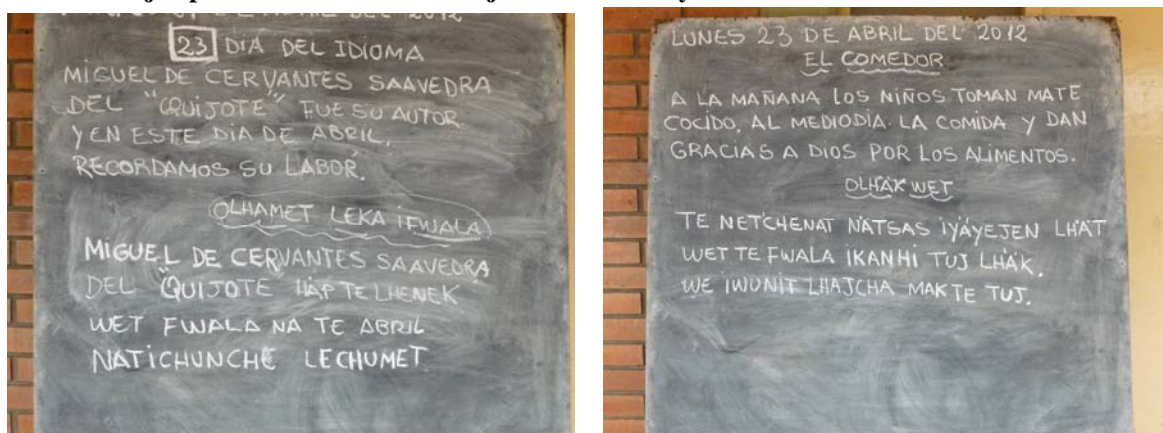 DEL 2012
23 DÍA DEL IDIOMA
MIGUEL DE CERVANTES SAAVEDRA
DEL "QUIJOTE" FUE SU AUTOR
Y EN ESTE DÍA DE ABRIL,
RECORDAMOS SU LABOR.
OLHAMET LEKA IFWALA
MIGUEL DE CERVANTES SAAVEDRA
DEL "QUIJOTE HÄP TE LHENEK
WET FWALA NA TE ABRIL
NATICHUNCHE LECHUMET
LUNES 23 DE ABRIL DEL 2012
EL COMEDOR
A LA MAÑANA LOS NIÑOS TOMAN MATE
COCIDO, AL MEDIODÍA LA COMIDA Y DAN
GRACIAS A DIOS POR LOS ALIMENTOS.
OLHÄK WET
TE NETCHENAT NÄTSAS IYÄYEJEN LHÄT
WET TE FWALA IKANHI TUJ LHÄK.
WE IWUNIT LHAJCHA MAK TE TUJ.